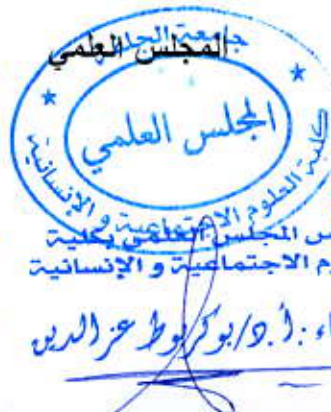 المجلس العلمي
جامعة الجلفة
المجلس العلمي
كلية العلوم الاجتماعية و الإنسانية
س المجلس العلمي بكلية
وم الاجتماعية و الإنسانية
اء : أ.د/بوكربوط عز الدين